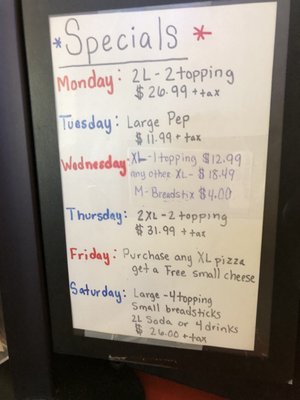 *Specials*
Monday: 2L - 2 topping
$26.99 + tax
Tuesday: Large Pep
$11.99 + tax
Wednesday: XL - 1 topping $12.99
any other XL - $18.49
M - Breadstix $4.00
Thursday: 2XL - 2 topping
$31.99 + tax
Friday: Purchase any XL pizza
get a Free small cheese
Saturday: Large - 4 topping
Small breadsticks
2L Soda or 4 drinks
$26.00 + tax